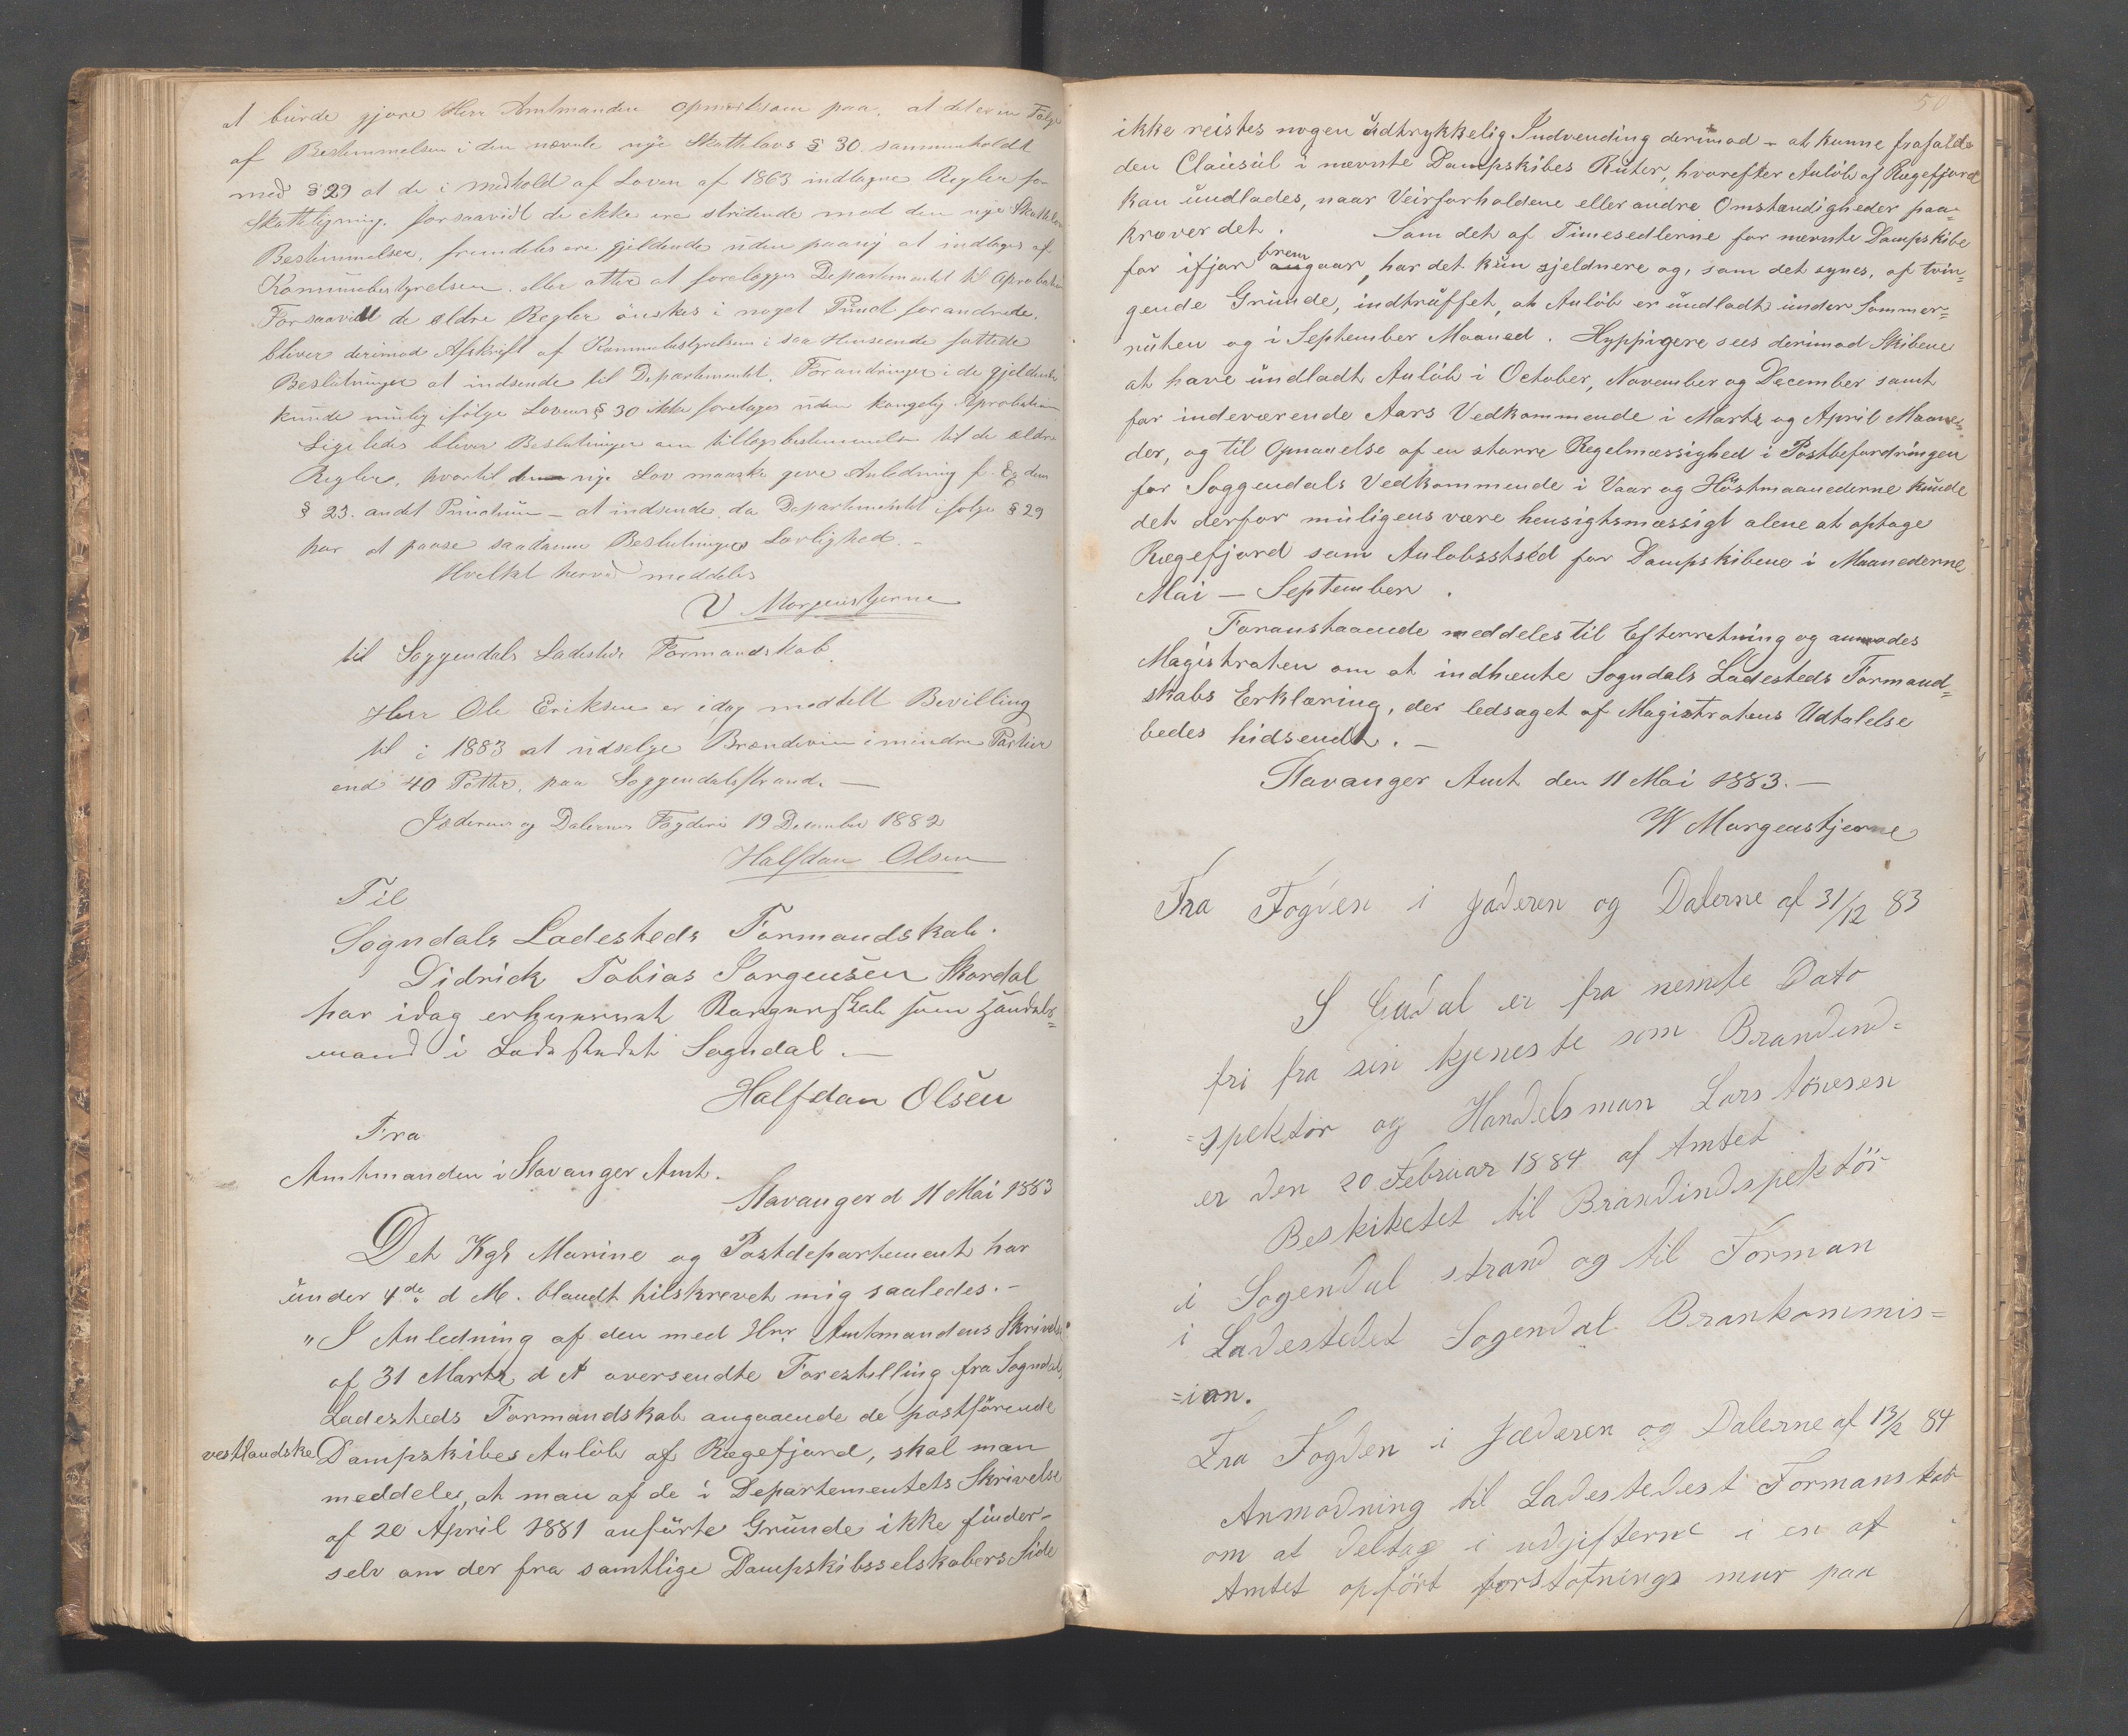 at burde gjøre Herr Amtmanden opmærksom paa, at det er en Følge
af Bestemmelsen i den nævnte nye Skattelovs § 30 sammenholdt
med § 29 at de i medhold af Loven af 1863 indtagne Regler for
Skatteligning, forsaavidt de ikke ere stridende mod den nye Skattelov
Bestemmelser, fremdeles ere gjeldende uden paany at indtages af
Kommunebestyrelsen, eller atter at forelægges Departementet til Aprobation
Forsaavidt de ældre Regler ønskes i noget Punct forandrede,
bliver derimod Afskrift af Kommunebestyrelsens i saa Henseende fattede
Beslutninger at indsende til Departementet. Forandringer i de gjeldende
kunde nemlig ifølge Lovens § 30 ikke foretages uden kongelig Aprobation
Ligeledes bliver Beslutninger om tillægsbestemmelser til de ældre
Regler, hvortil den nye Lov maaske give Anledning f. Ex dens
§ 23. andet Punctum – at indsende, da Departementet ifølge § 29
har at paase saadanne Beslutningers Lovlighed. –
Hvilket herved meddeles
V Morgenstjerne
til Soggendals Ladesteds Formandskab
Herr Ole Eriksen er idag meddelt Bevilling
til i 1883 at udselge Brændevin i mindre Partier
end 40 Potter, paa Soggendalsstrand. —
Jæderens og Dalernes Fogderi 19 December 1882
Halfdan Olsen
Til
Sogndals Ladesteds Formandskab.
Didrick Tobias Jørgensen Skordal
har idag erhvervet Borgerskab som Handels=
mand i Ladestedet Sogndal. —
Halfdan Olsen
Fra
Amtmanden i Stavanger Amt.
Stavanger d 11 Mai 1883
Det Kgl Marine og Postdepartement har
under 4de d M. blandt tilskrevet mig saaledes. –
"I Anledning af den med Hrr Amtmandens Skrivelse
af 31 Marts d A oversendte Forestilling fra Sogndal
Ladesteds Formandskab angaaende de postførende
vestlandske Dampskibes Anløb af Rægefjord, skal man
meddeles, at man af de i Departementets Skrivelse
af 20 April 1881 anførte Grunde ikke finder –
selv om der fra samtlige Dampskibsselskabers Side
50
ikke reistes nogen udtrykkelig Indvending derimod – at kunne frafalde
den Clausul i nævnte Dampskibes Ruter, hvorefter Anløb af Rægefjord
kan undlades, naar Veirforholdene eller andre Omstændigheder paa=
kræver det. Som det af Timesedlerne for nævnte Dampskibe
for ifjor fremgaar, har det kun sjeldnere og, som det synes, af tvin=
gende Grunde, indtruffet, at Anløb er undladt under Sommer=
ruten og i September Maaned. Hyppigere sees derimod Skibene
at have undladt Anløb i October, November og December samt
for indeværende Aars Vedkommende i Marts og April Maane=
der, og til Opnaaelse af en større Regelmæssighed i Postbefordringen
for Soggendals Vedkommende i Vaar og Høstmaanederne kunde
det derfor muligens være hensigtsmæssigt alene at optage
Rægefjord som Anløbssted for Dampskibene i Maanederne
Mai – September.
Foranstaaende meddeles til Efterretning og anmodes
Magistraten om at indhente Sogndals Ladesteds Formand=
skabs Erklæring, der ledsaget af Magistratens Udtalelse
bedes hidsendt. –
Stavanger Amt den 11 Mai 1883. –
W Morgenstjerne
Fra Fogden i Jæderen og Dalerne af 31/12 83
S Gudal er fra nemte Dato
fri fra sin tjeneste som Brandend=
=spektør og Handelsman Lars tönesen
er den 20 Februar 1884 af Amtet
Beskiketet til Brandindspektör
i Sogendal strand og til Forman
i Ladestedet Sogendal Brankommis=
=ion.
Fra Fogden i Jæderen og Dalerne af 13/2 84
Anmodning til Ladestedest Formanskab
om at deltag i udjifterne i en af
Amtet opført forstøtnings mur paa